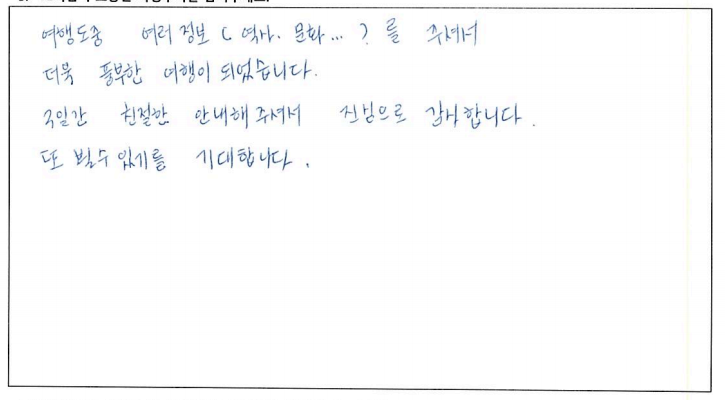 여행도중 여러 정보 ( 역사. 문화... ) 를 주셔서
더욱 풍부한 여행이 되었습니다.
3일간 친절한 안내해 주셔서 진심으로 감사합니다.
또 뵐수 있기를 기대합니다.